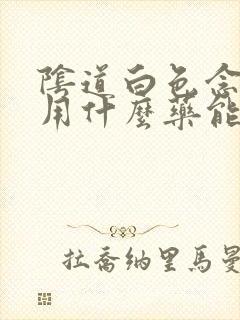 陰道白色念
用什麼藥能
拉喬納里馬曼